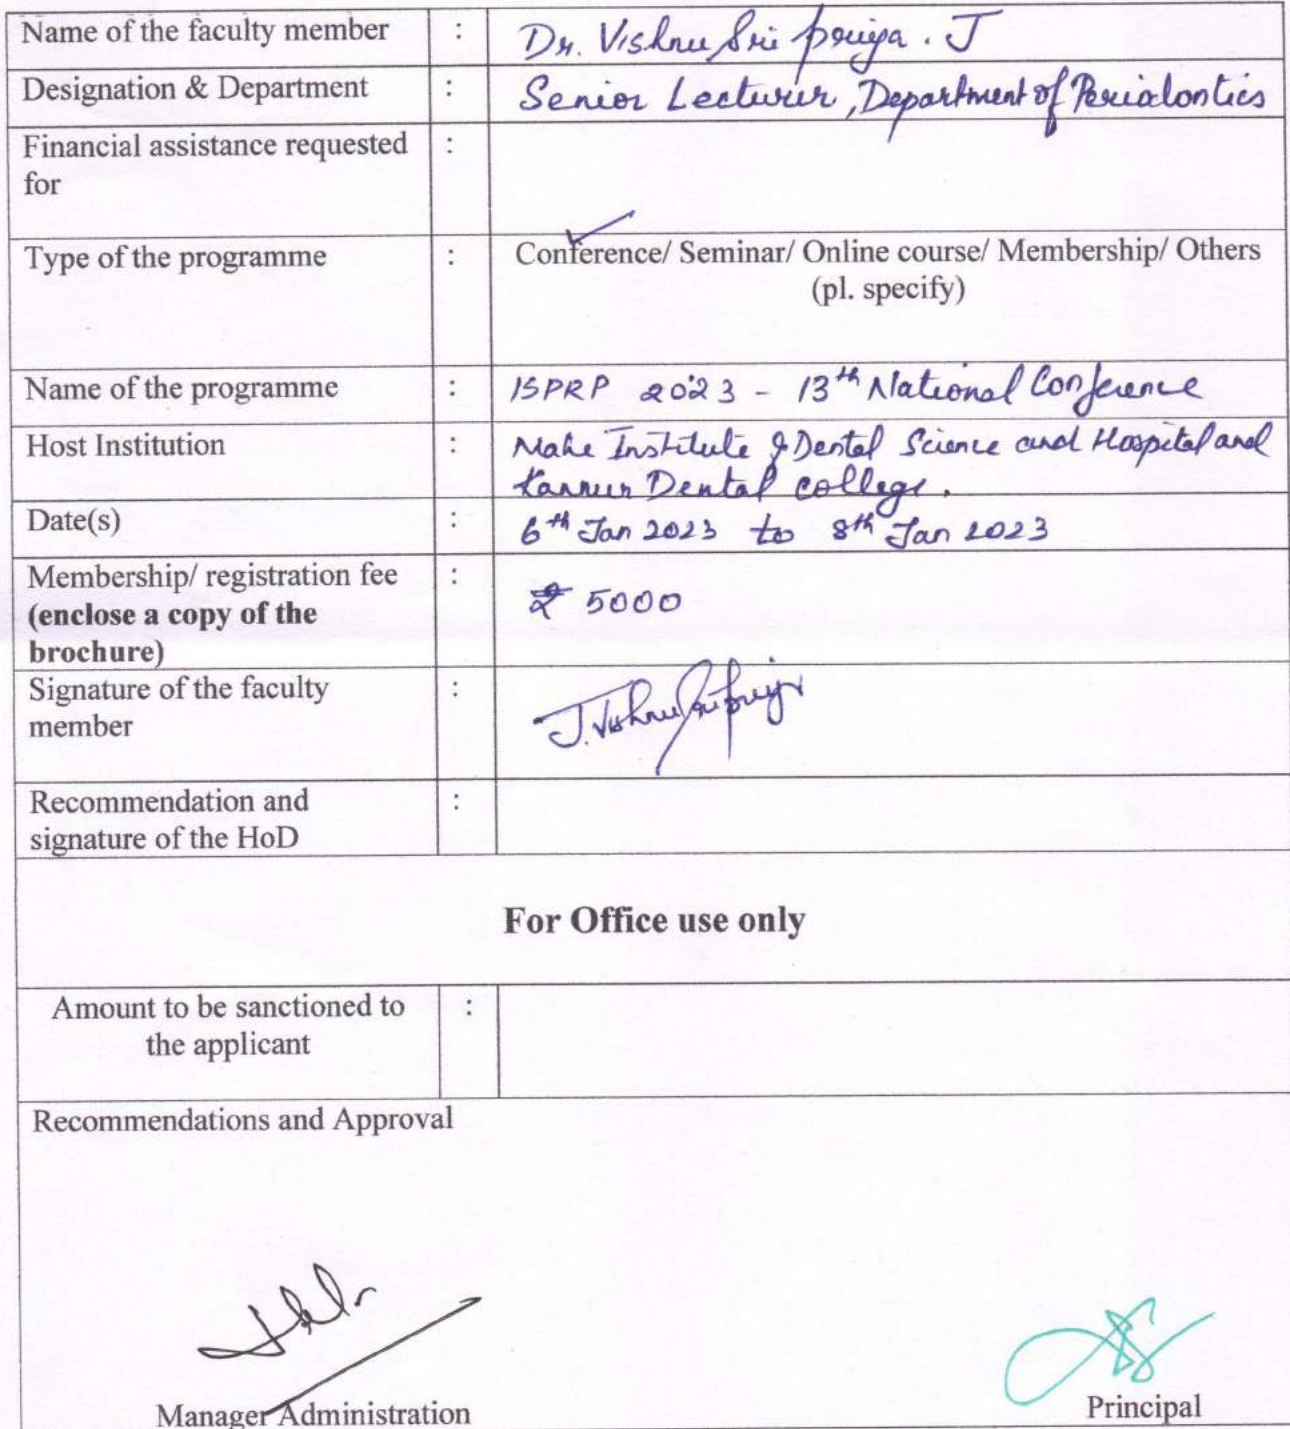 Name of the faculty member : Dr. Vishnu Sri priya. J
Designation & Department : Senior Lecturer, Department of Periodontics
Financial assistance requested :
for
Type of the programme : Conference/ Seminar/ Online course/ Membership/ Others
(pl. specify)
Name of the programme : ISPRP 2023 - 13th National Conference
Host Institution : Mahe Institute of Dental Science and Hospital and
Kannur Dental college.
Date(s) : 6th Jan 2023 to 8th Jan 2023
Membership/ registration fee :
(enclose a copy of the ₹ 5000
brochure)
Signature of the faculty : J. Vishnu Sri priya
member
Recommendation and :
signature of the HoD
For Office use only
Amount to be sanctioned to :
the applicant
Recommendations and Approval
Manager Administration Principal